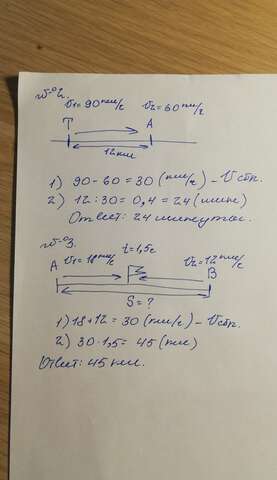 №2.
v₁=90 км/ч v₂=60 км/ч
Т А
12 км
1) 90-60=30 (км/ч) - v сбл.
2) 12:30=0,4=24 (мин)
Ответ: 24 минуты.
№3.
t=1,5ч
А v₁=18 км/ч v₂=12 км/ч В
S=?
1) 18+12=30 (км/ч) - v сбл.
2) 30·1,5=45 (км)
Ответ: 45 км.